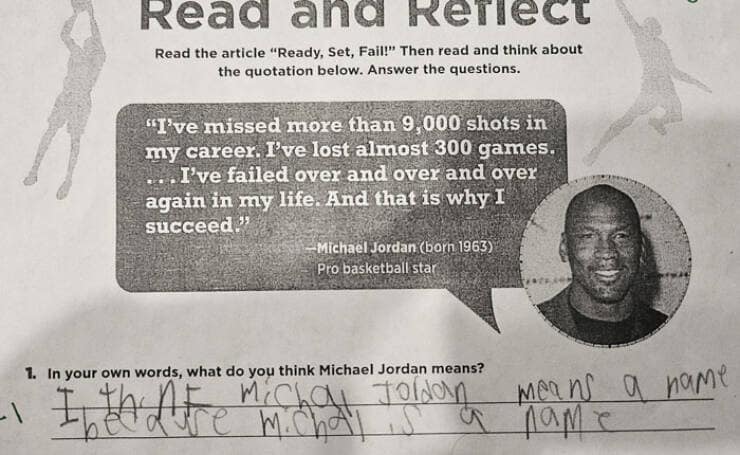 Read and Reflect
Read the article “Ready, Set, Fail!” Then read and think about
the quotation below. Answer the questions.
“I’ve missed more than 9,000 shots in
my career. I’ve lost almost 300 games.
. . . I’ve failed over and over and over
again in my life. And that is why I
succeed.”
—Michael Jordan (born 1963)
Pro basketball star
1. In your own words, what do you think Michael Jordan means?
I thinK Michal Joldan means a name
-1
because Michall is a name